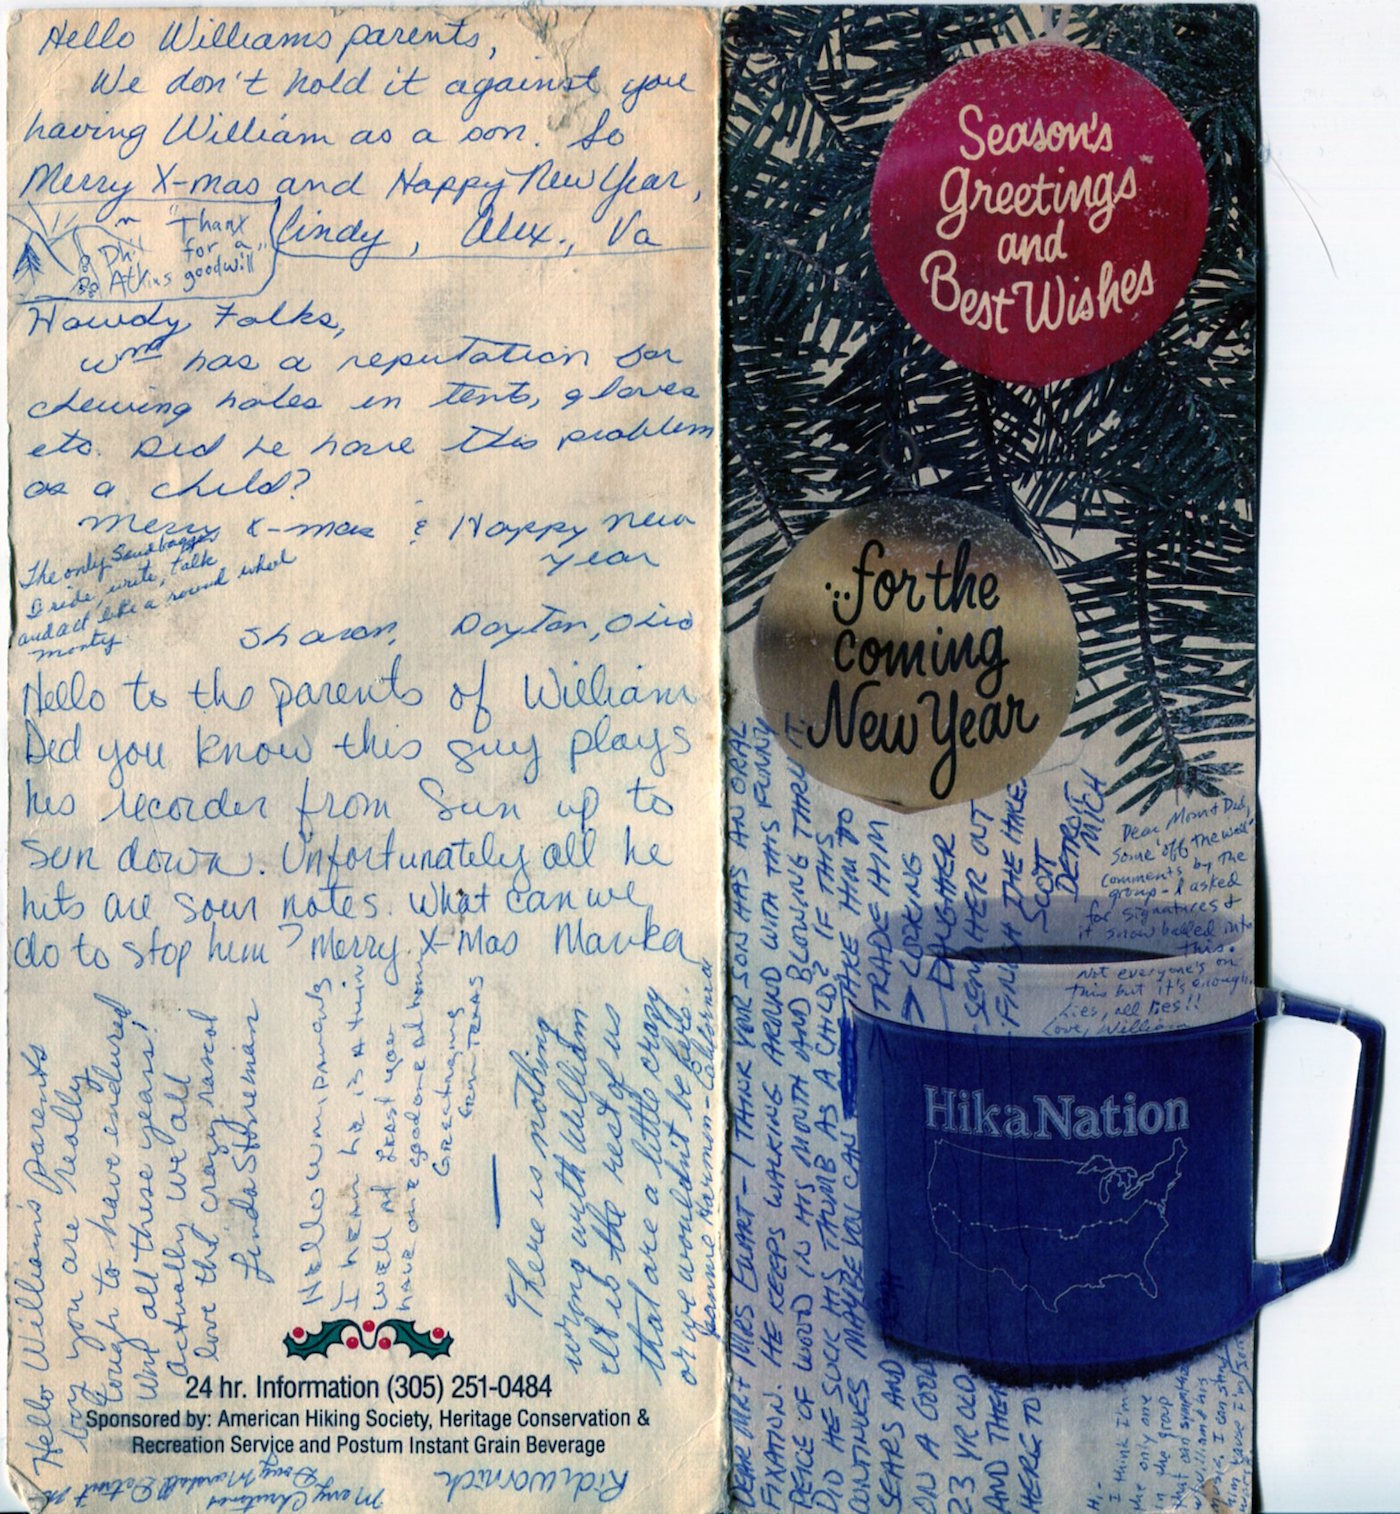 Hello Williams parents,
We don't hold it against you
having William as a son. So
Merry X-mas and Happy New Year,
Cindy, Alex., Va
"Thanx
for a
goodwill"
Phil
Atkins
Howdy Folks,
Wm has a reputation for
chewing holes in tents, gloves
etc. Did he have this problem
as a child?
Merry X-mas & Happy New
Year
Sharon, Dayton, Ohio
The only Sandbagger
I ride, write, talk
and act like a round wheel
monty.
Hello to the parents of William
Did you know this guy plays
his recorder from Sun up to
Sun down. Unfortunately all he
hits are sour notes. What can we
do to stop him? Merry X-Mas Marka
Hello William's Parents
Boy you are really
tough to have endured
Wm all these years!
Actually we all
love the crazy rascal
Linda Stoneman
Hello Wm. Parents
I hear he is a twin
Well at least you
have one good one at home
Greetings
from Texas
There is nothing
wrong with William
it is the rest of us
that are a little crazy
or we wouldn't be here.
Jeanne Harmon - California
24 hr. Information (305) 251-0484
Sponsored by: American Hiking Society, Heritage Conservation &
Recreation Service and Postum Instant Grain Beverage
Merry Christmas
Doug Marshall Detroit
Rick Wornick
Season's
Greetings
and
Best Wishes
...for the
coming
New Year
DEAR MR & MRS EWART - I THINK YOUR SON HAS AN ORAL
FIXATION. HE KEEPS WALKING AROUND WITH THIS FUNNY
PEICE OF WOOD IN HIS MOUTH AND BLOWING THRU IT.
DID HE SUCK HIS THUMB AS A CHILD? IF THIS
CONTINUES MAYBE YOU CAN TAKE HIM TO
SEARS AND TRADE HIM
ON A GOOD > LOOKING
23 YR OLD DAUGHTER
AND THEN SEND HER OUT
HERE TO FINISH THE HIKE.
SCOT
DETROIT
MICH
Dear Mom & Dad,
Some "off the wall"
comments by the
group - I asked
for signatures &
it snow balled into
this.
Not everyone's on
this but it's enough.
Lies, all lies!!
Love, William
HikaNation
Hi -
I think I'm
the only one
in the group
that can
William and his
music, I can stand
him